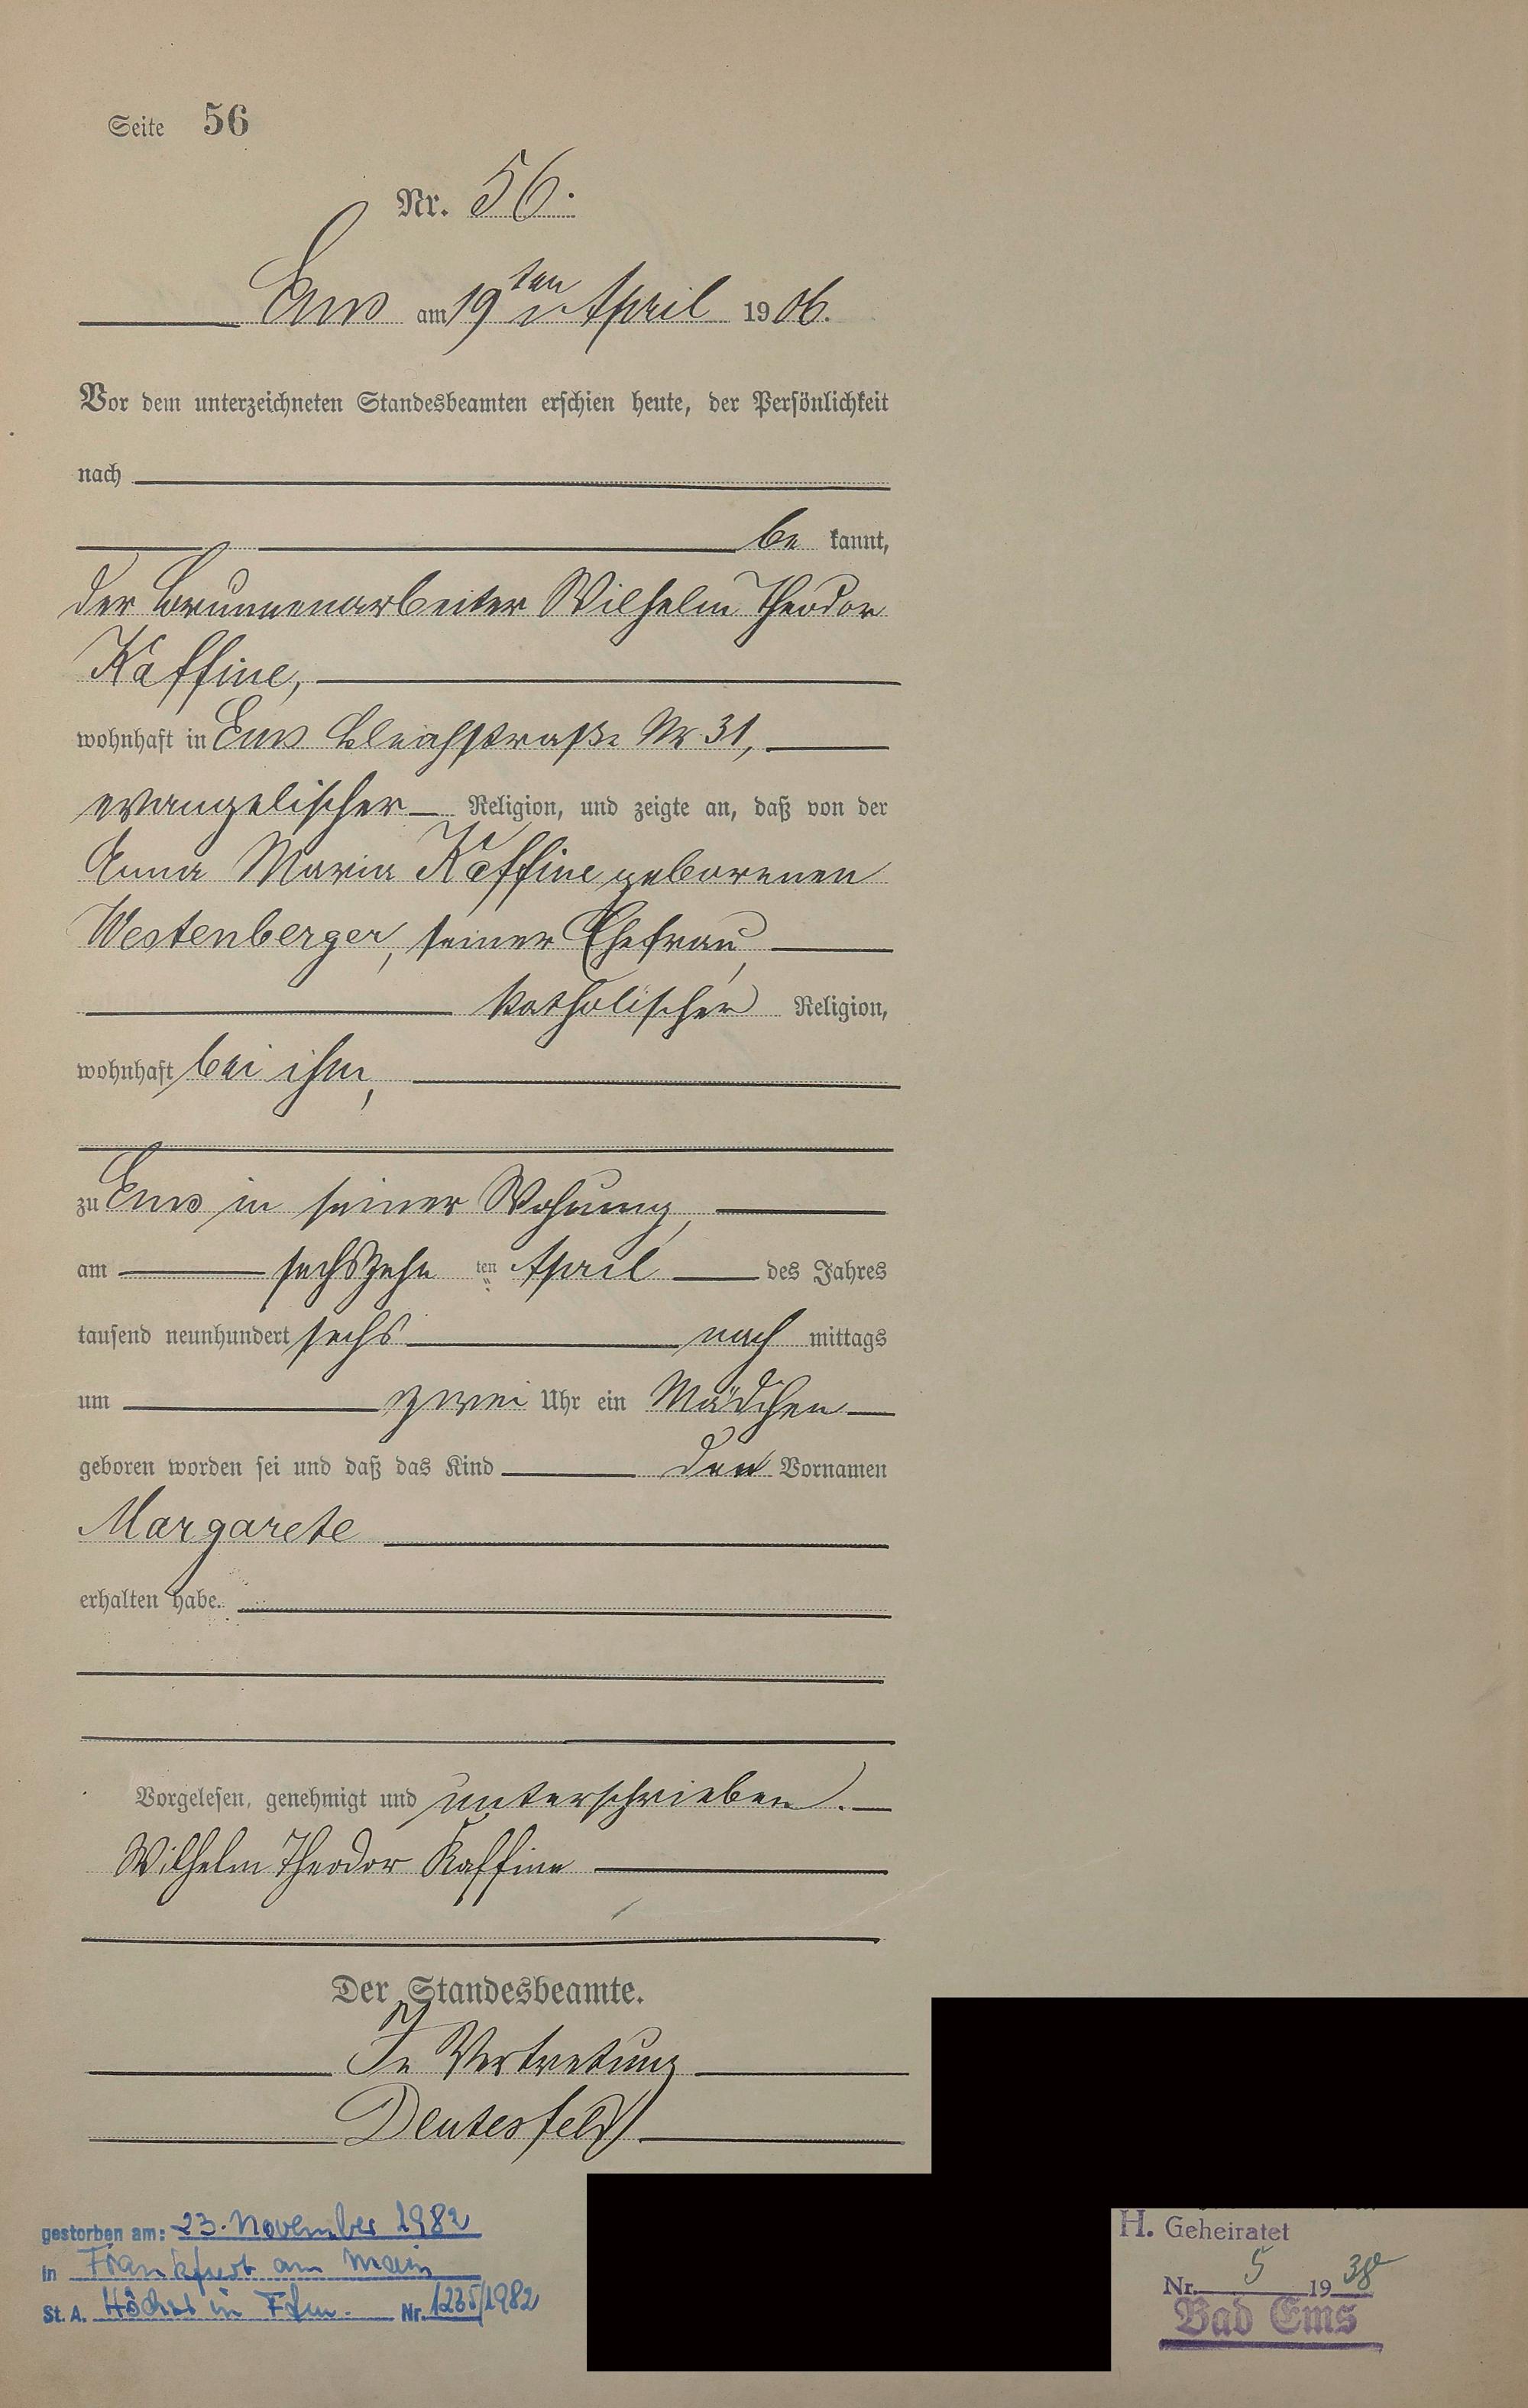 Seite 56
Nr. 56.
Ems am 19ten April 1906.
Vor dem unterzeichneten Standesbeamten erschien heute, der Persönlichkeit
nach
be kannt,
der Brunnenarbeiter Wilhelm Theodor
Kaffine,
wohnhaft in Ems Bleichstraße Nr 31,
evangelischer Religion, und zeigte an, daß von der
Anna Maria Kaffine geborenen
Westenberger, seiner Ehefrau,
katholischer Religion,
wohnhaft bei ihm,
zu Ems in seiner Wohnung,
am sechszehn ten April des Jahres
tausend neunhundert sechs nach mittags
um zwei Uhr ein Mädchen
geboren worden sei und daß das Kind den Vornamen
Margarete
erhalten habe.
Vorgelesen, genehmigt und unterschrieben.
Wilhelm Theodor Kaffine
Der Standesbeamte.
In Vertretung
Deutesfeld
gestorben am: 23. November 1982
in Frankfurt am Main
St. A. Höchst in Ffm. Nr. 1235/1982
H. Geheiratet
Nr. 5 1938
Bad Ems